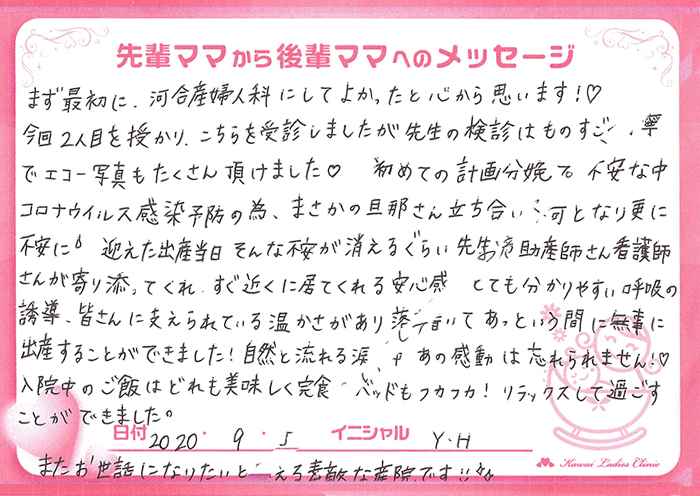 先輩ママから後輩ママへのメッセージ
まず最初に、河合産婦人科にしてよかったと心から思います!♡
今回2人目を授かり、こちらを受診しましたが先生の検診はものすご 寧
でエコー写真もたくさん頂けました♡ 初めての計画分娩で 不安な中
コロナウイルス感染予防の為、まさかの旦那さん立ち合い 不可となり更に
不安に 迎えた出産当日 そんな不安が消えるぐらい先生 助産師さん看護師
さんが寄り添ってくれ すぐ近くに居てくれる安心感 とても分かりやすい呼吸の
誘導、皆さんに支えられている温かさがあり 落 いて あっという間に無事に
出産することができました!自然と流れる涙、 あの感動は忘れられません!♡
入院中のご飯はどれも美味しく完食 ベッドもフカフカ!リラックスして過ごす
ことができました。
日付 2020・9・5 イニシャル Y・H
またお世話になりたいと える素敵な産院です!!
Kawai Ladies Clinic